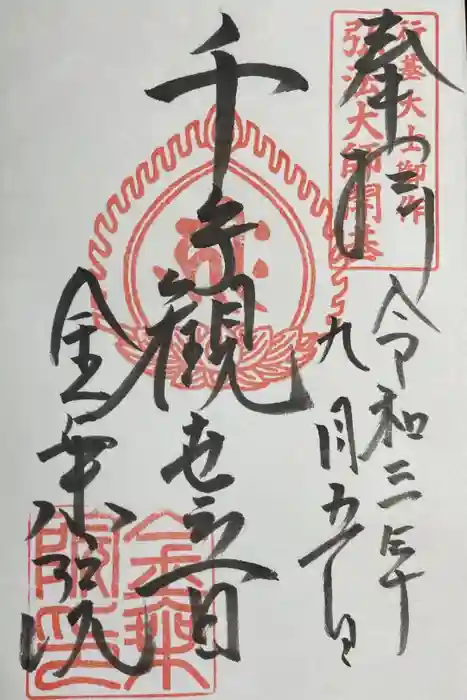 奉拝
行基大士御作
弘法大師開基
令和三年
九月五日
千手観世音
金乗院
金乗院印